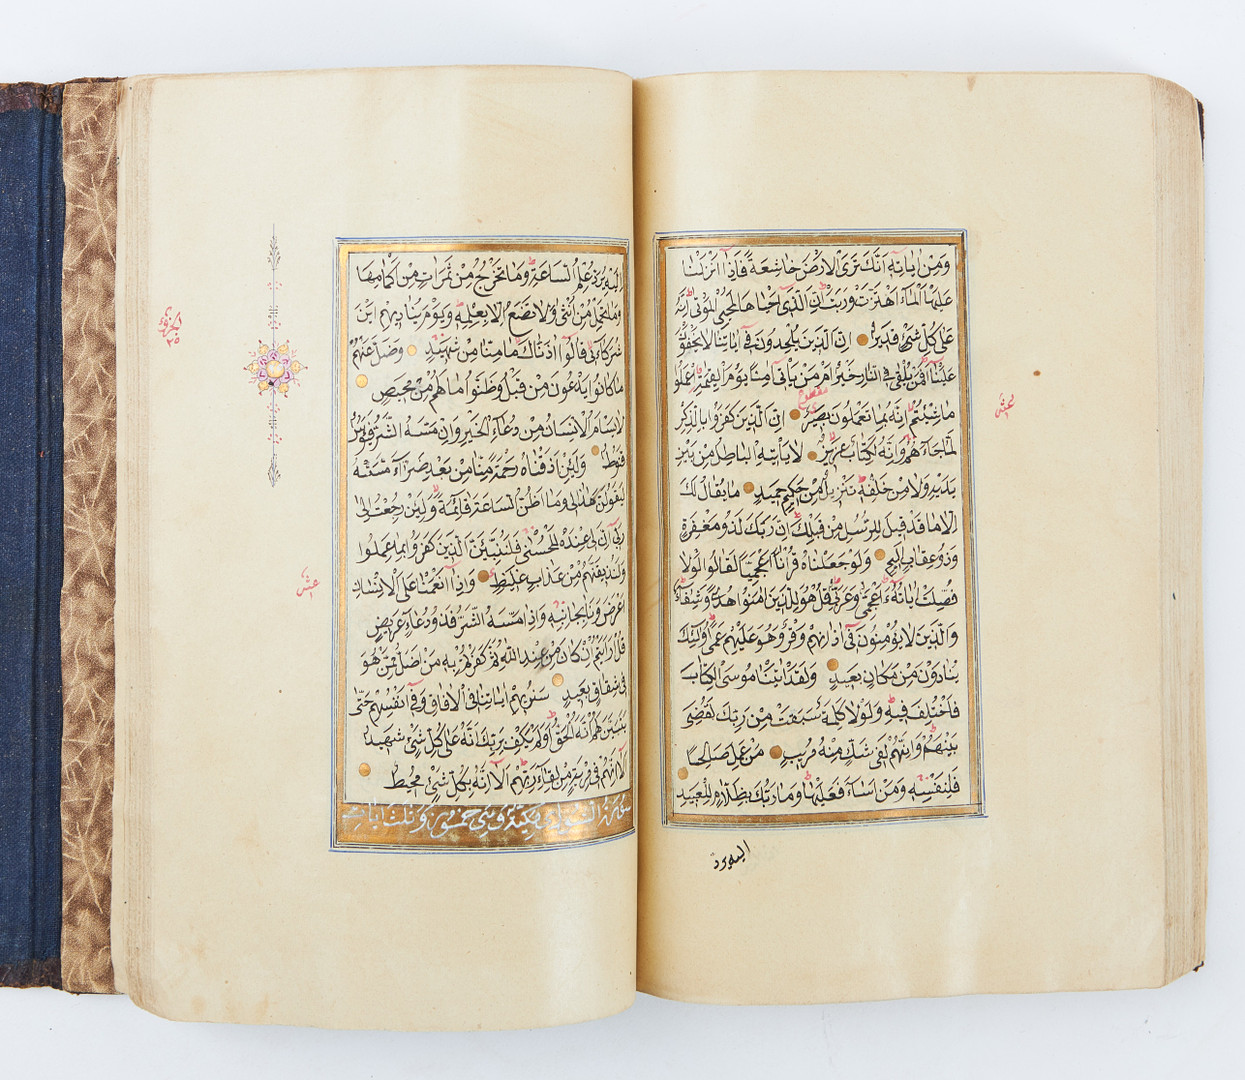 وَمِنْ اٰيَاتِهٖ اَنَّكَ تَرَى الْاَرْضَ خَاشِعَةً فَاِذَا اَنْزَلْنَا
عَلَيْهَا الْمَاءَ اهْتَزَّتْ وَرَبَتْ اِنَّ الَّذٖى اَحْيَاهَا لَمُحْيِى الْمَوْتٰى اِنَّهُ
عَلٰى كُلِّ شَىْءٍ قَدٖيرٌ اِنَّ الَّذٖينَ يُلْحِدُونَ فٖى اٰيَاتِنَا لَا يَخْفَوْنَ
عَلَيْنَا اَفَمَنْ يُلْقٰى فِى النَّارِ خَيْرٌ اَمْ مَنْ يَاْتٖى اٰمِنًا يَوْمَ الْقِيٰمَةِ اِعْمَلُوا
مَا شِئْتُمْ اِنَّهُ بِمَا تَعْمَلُونَ بَصٖيرٌ اِنَّ الَّذٖينَ كَفَرُوا بِالذِّكْرِ
لَمَّا جَاءَهُمْ وَاِنَّهُ لَكِتَابٌ عَزٖيزٌ لَا يَاْتٖيهِ الْبَاطِلُ مِنْ بَيْنِ
يَدَيْهِ وَلَا مِنْ خَلْفِهٖ تَنْزٖيلٌ مِنْ حَكٖيمٍ حَمٖيدٍ مَا يُقَالُ لَكَ
اِلَّا مَا قَدْ قٖيلَ لِلرُّسُلِ مِنْ قَبْلِكَ اِنَّ رَبَّكَ لَذُو مَغْفِرَةٍ
وَذُو عِقَابٍ اَلٖيمٍ وَلَوْ جَعَلْنَاهُ قُرْاٰنًا اَعْجَمِيًّا لَقَالُوا لَوْلَا
فُصِّلَتْ اٰيَاتُهُ ءَاَعْجَمِىٌّ وَعَرَبِىٌّ قُلْ هُوَ لِلَّذٖينَ اٰمَنُوا هُدًى وَشِفَاءٌ
وَالَّذٖينَ لَا يُؤْمِنُونَ فٖى اٰذَانِهِمْ وَقْرٌ وَهُوَ عَلَيْهِمْ عَمًى اُولٰئِكَ
يُنَادَوْنَ مِنْ مَكَانٍ بَعٖيدٍ وَلَقَدْ اٰتَيْنَا مُوسَى الْكِتَابَ
فَاخْتُلِفَ فٖيهِ وَلَوْلَا كَلِمَةٌ سَبَقَتْ مِنْ رَبِّكَ لَقُضِىَ
بَيْنَهُمْ وَاِنَّهُمْ لَفٖى شَكٍّ مِنْهُ مُرٖيبٍ مَنْ عَمِلَ صَالِحًا
فَلِنَفْسِهٖ وَمَنْ اَسَاءَ فَعَلَيْهَا وَمَا رَبُّكَ بِظَلَّامٍ لِلْعَبٖيدِ
عشر
اليه يرد
اِلَيْهِ يُرَدُّ عِلْمُ السَّاعَةِ وَمَا تَخْرُجُ مِنْ ثَمَرَاتٍ مِنْ اَكْمَامِهَا
وَمَا تَحْمِلُ مِنْ اُنْثٰى وَلَا تَضَعُ اِلَّا بِعِلْمِهٖ وَيَوْمَ يُنَادٖيهِمْ اَيْنَ
شُرَكَاءٖى قَالُوا اٰذَنَّاكَ مَا مِنَّا مِنْ شَهٖيدٍ وَضَلَّ عَنْهُمْ
مَا كَانُوا يَدْعُونَ مِنْ قَبْلُ وَظَنُّوا مَا لَهُمْ مِنْ مَحٖيصٍ
لَا يَسْاَمُ الْاِنْسَانُ مِنْ دُعَاءِ الْخَيْرِ وَاِنْ مَسَّهُ الشَّرُّ فَيَؤُسٌ
قَنُوطٌ وَلَئِنْ اَذَقْنَاهُ رَحْمَةً مِنَّا مِنْ بَعْدِ ضَرَّاءَ مَسَّتْهُ
لَيَقُولَنَّ هٰذَا لٖى وَمَا اَظُنُّ السَّاعَةَ قَائِمَةً وَلَئِنْ رُجِعْتُ اِلٰى
رَبّٖى اِنَّ لٖى عِنْدَهُ لَلْحُسْنٰى فَلَنُنَبِّئَنَّ الَّذٖينَ كَفَرُوا بِمَا عَمِلُوا
وَلَنُذٖيقَنَّهُمْ مِنْ عَذَابٍ غَلٖيظٍ وَاِذَا اَنْعَمْنَا عَلَى الْاِنْسَانِ
اَعْرَضَ وَنَاٰ بِجَانِبِهٖ وَاِذَا مَسَّهُ الشَّرُّ فَذُو دُعَاءٍ عَرٖيضٍ
قُلْ اَرَاَيْتُمْ اِنْ كَانَ مِنْ عِنْدِ اللّٰهِ ثُمَّ كَفَرْتُمْ بِهٖ مَنْ اَضَلُّ مِمَّنْ هُوَ
فٖى شِقَاقٍ بَعٖيدٍ سَنُرٖيهِمْ اٰيَاتِنَا فِى الْاٰفَاقِ وَفٖى اَنْفُسِهِمْ حَتّٰى
يَتَبَيَّنَ لَهُمْ اَنَّهُ الْحَقُّ اَوَلَمْ يَكْفِ بِرَبِّكَ اَنَّهُ عَلٰى كُلِّ شَىْءٍ شَهٖيدٌ
اَلَا اِنَّهُمْ فٖى مِرْيَةٍ مِنْ لِقَاءِ رَبِّهِمْ اَلَا اِنَّهُ بِكُلِّ شَىْءٍ مُحٖيطٌ
سورة الشورى مكية وهى خمسون وثلث ايات
الجزؤ
٢٥
عشر